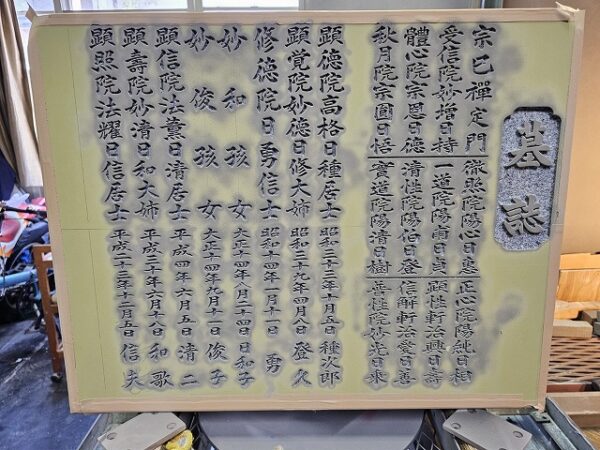 墓誌
宗巳禪定門
受信院妙増日持
體心院宗恩日德
秋月院宗圓日悟
徹照院陽心日惠
一道院陽甫日貞
清性院陽伯日登
寶道院陽清日樹
正心院陽純日相
顕性軒治興日壽
信解軒治愛日善
善性院妙光日来
顕德院高格日種居士 昭和三十年十月五日 種次郎
顕覚院妙徳日修大姉 昭和三十九年四月八日 登久
修徳院日勇信士 昭和十四年一月十一日 勇
妙和孩女 大正十四年八月二十四日 日和子
妙俊孩女 大正十四年九月十一日 俊子
顕信院法薫日清居士 平成四年六月五日 清二
顕壽院妙清日和大姉 平成二十年六月十八日 和歌
顕照院法耀日信居士 平成二十三年十二月五日 信夫